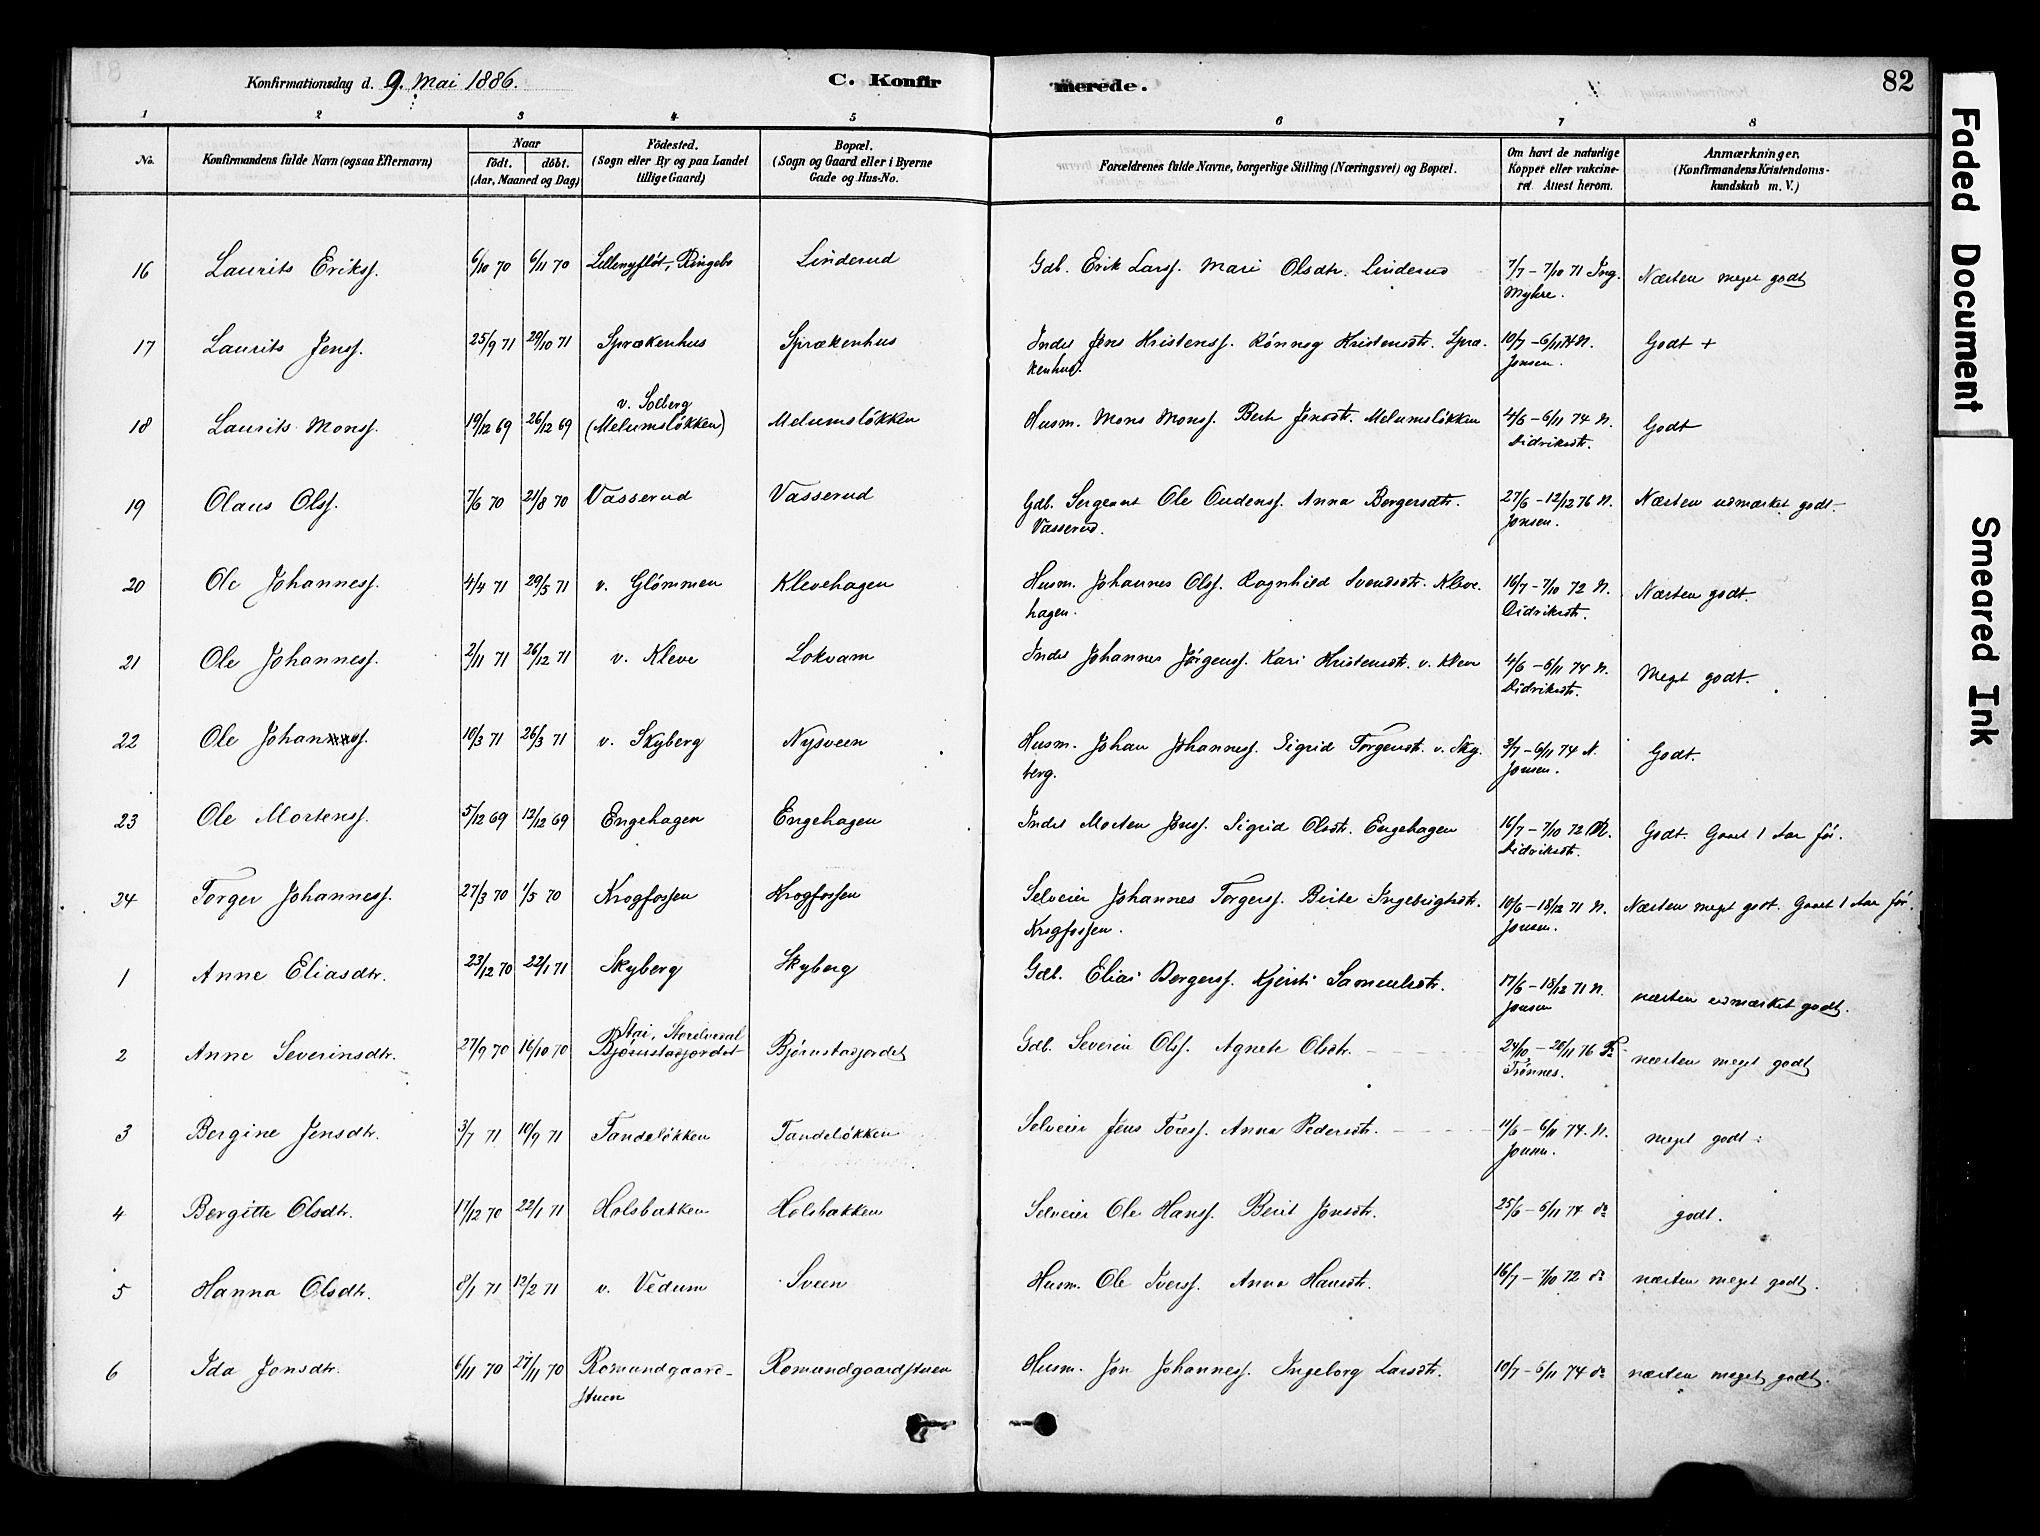 Konfirmationsdag d. 9. Mai 1886.
C. Konfirmerede.
82
1 2 3 4 5 6 7 8
No.
Konfirmandens fulde Navn (ogsaa Efternavn)
Naar
födt. döbt.
(Aar, Maaned og Dag)
Födested.
(Sogn eller By og paa Landet
tillige Gaard)
Bopæl.
(Sogn og Gaard eller i Byerne
Gade og Hus-No.
Forældrenes fulde Navne, borgerlige Stilling (Næringsvei) og Bopæl.
Om havt de naturlige
Kopper eller vakcine-
ret. Attest herom.
Anmærkninger.
(Konfirmandens Kristendoms-
kundskab m. V.)
16 Laurits Erikss. 6/10 70 6/11 70 Lillenyflöt, Ringebo Linderud Gdb. Erik Larss. Mari Olsdtr. Linderud 7/7 – 7/10 71 Ing. Næsten meget godt
Myhre.
17 Laurits Jenss. 25/9 71 29/10 71 Sprækenhus Sprækenhus Inds Jens Kristenss. Rönnog Kristensdtr. Spræ- 10/7 – 6/11 74 N. Godt +
kenhus. Jonsen.
v. Solberg
18 Laurits Monss. 19/12 69 26/12 69 (Melumslökken) Melumslökken Husm. Mons Monss. Berit Jensdtr. Melumslökken 4/6 – 6/11 74 N. Godt
Didriksdtr.
19 Olaus Olss. 7/6 70 21/8 70 Vasserud Vasserud Gdb. Sergeant Ole Oudenss. Anna Bergersdtr. 27/6 – 12/12 76 N. Næsten udmærket godt
Vasserud. Jonsen.
20 Ole Johanness. 4/4 71 29/5 71 v. Glömmen Klevehagen Husm. Johannes Olss. Ragnhild Svendsdtr. Kleve- 16/7 – 7/10 72 N. Næsten godt.
hagen. Didriksdtr.
21 Ole Johanness. 2/11 71 26/12 71 v. Kleve Lokvam Inds Johannes Jörgenss. Kari Kristensdtr. v. Kleve 4/6 – 6/11 74 N. Meget godt.
Didriksdtr.
22 Ole Johans. 10/3 71 26/3 71 v. Skyberg Nysveen Husm. Johan Johanness. Sigrid Torgersdtr. v. Sky- 3/7 – 6/11 74 N. Godt.
berg. Jonsen.
23 Ole Mortenss. 5/12 69 12/12 69 Engehagen Engehagen Inds Morten Jonss. Sigrid Olsdtr. Engehagen 16/7 – 7/10 72 N. Godt. Gaaet 1 Aar för.
Didriksdtr.
24 Torger Johanness. 27/3 70 1/5 70 Krogfossen Krogfossen Selveier Johannes Torgerss. Berte Ingebrigtsdtr. 10/6 – 18/12 71 N. Næsten meget godt. Gaaet 1 Aar för.
Krogfossen. Jonsen.
1 Anne Eliasdtr. 23/12 70 22/1 71 Skyberg Skyberg Gdb. Elias Bergerss. Kjersti Samuelsdtr. 17/6 – 18/12 71 N. næsten udmærket godt.
Jonsen
Stai, Storelvedal
2 Anne Severinsdtr. 27/9 70 16/10 70 Bjørnstadjordet Bjørnstadjordet Gdb. Severin Olss. Agnete Olsdtr. 24/10 – 26/11 76 næsten meget godt
Trönnes.
3 Bergine Jensdtr. 3/7 71 10/9 71 Tandelökken Tandelökken Selveier Jens Toress. Anna Pedersdtr. 11/6 – 6/11 74. N. meget godt.
Jonsen.
4 Bergitte Olsdtr. 17/12 70 22/1 71 Holsbakken Holsbakken Selveier Ole Hanss. Berit Jonsdtr. 25/6 – 6/11 74 do godt.
5 Hanna Olsdtr. 8/1 71 12/2 71 v. Vedum Sveen Husm. Ole Iverss. Anna Hansdtr. 16/7 – 7/10 72 do næsten meget godt.
6 Ida Jonsdtr. 6/11 70 27/11 70 Romundgaard- Romundgaardstuen Husm. Jon Johanness. Ingeborg Larsdtr. 10/7 – 6/11 74 do næsten meget godt.
stuen
Faded Document
Smeared Ink